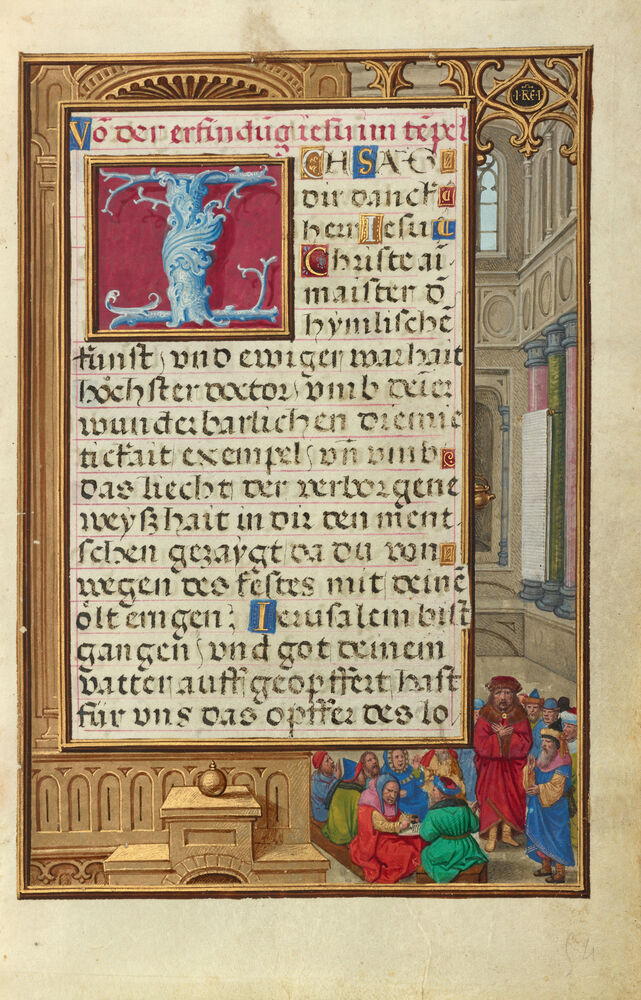 Võ der erfindũg iesu im tẽpel
ICH SAG
dir danck
herr Iesu
Christe ai
maister d̃
hymlischẽ
kunst, und ewiger warhait
höchster doctor, umb deiner
wunderbarlichen diemie
tickait exempel, uñ umb
das liecht der verborgene
weyßhait in dir den ment
schen gezaygt da du von
wegen des festes mit deinẽ
ölt ern gen: Ierusalem bist
gangen, und got deinem
vatter auff geopffert hast
für uns das opffer des lo